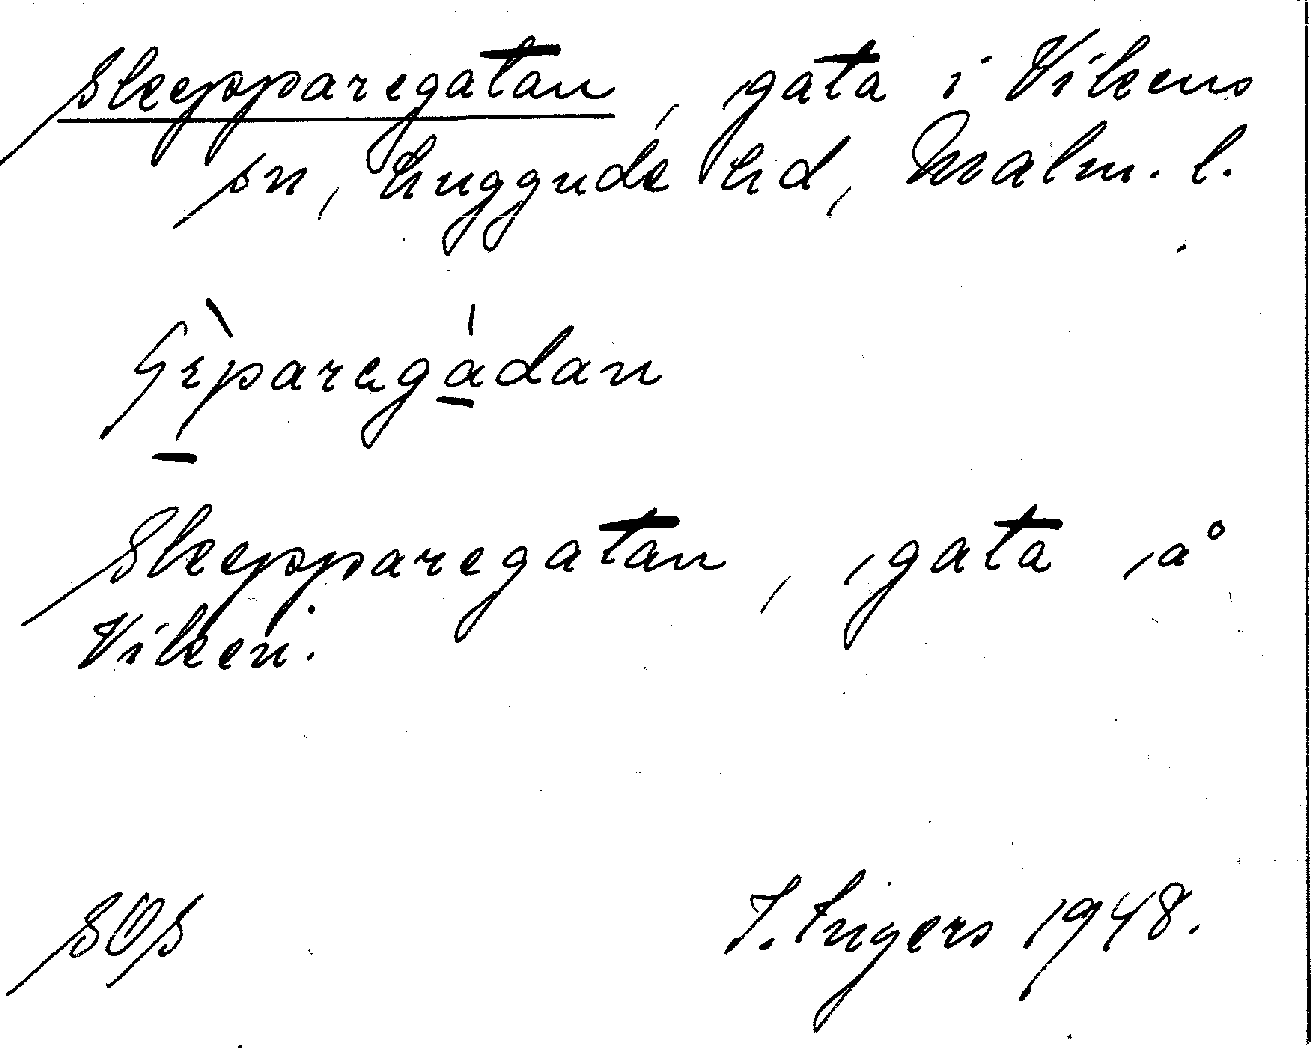 Skepparegatan, gata i Vikens
sn, Luggude hd, Malm. l.
Skepparegatan, gata å
Viken.
SOS
I. Ingers 1948.